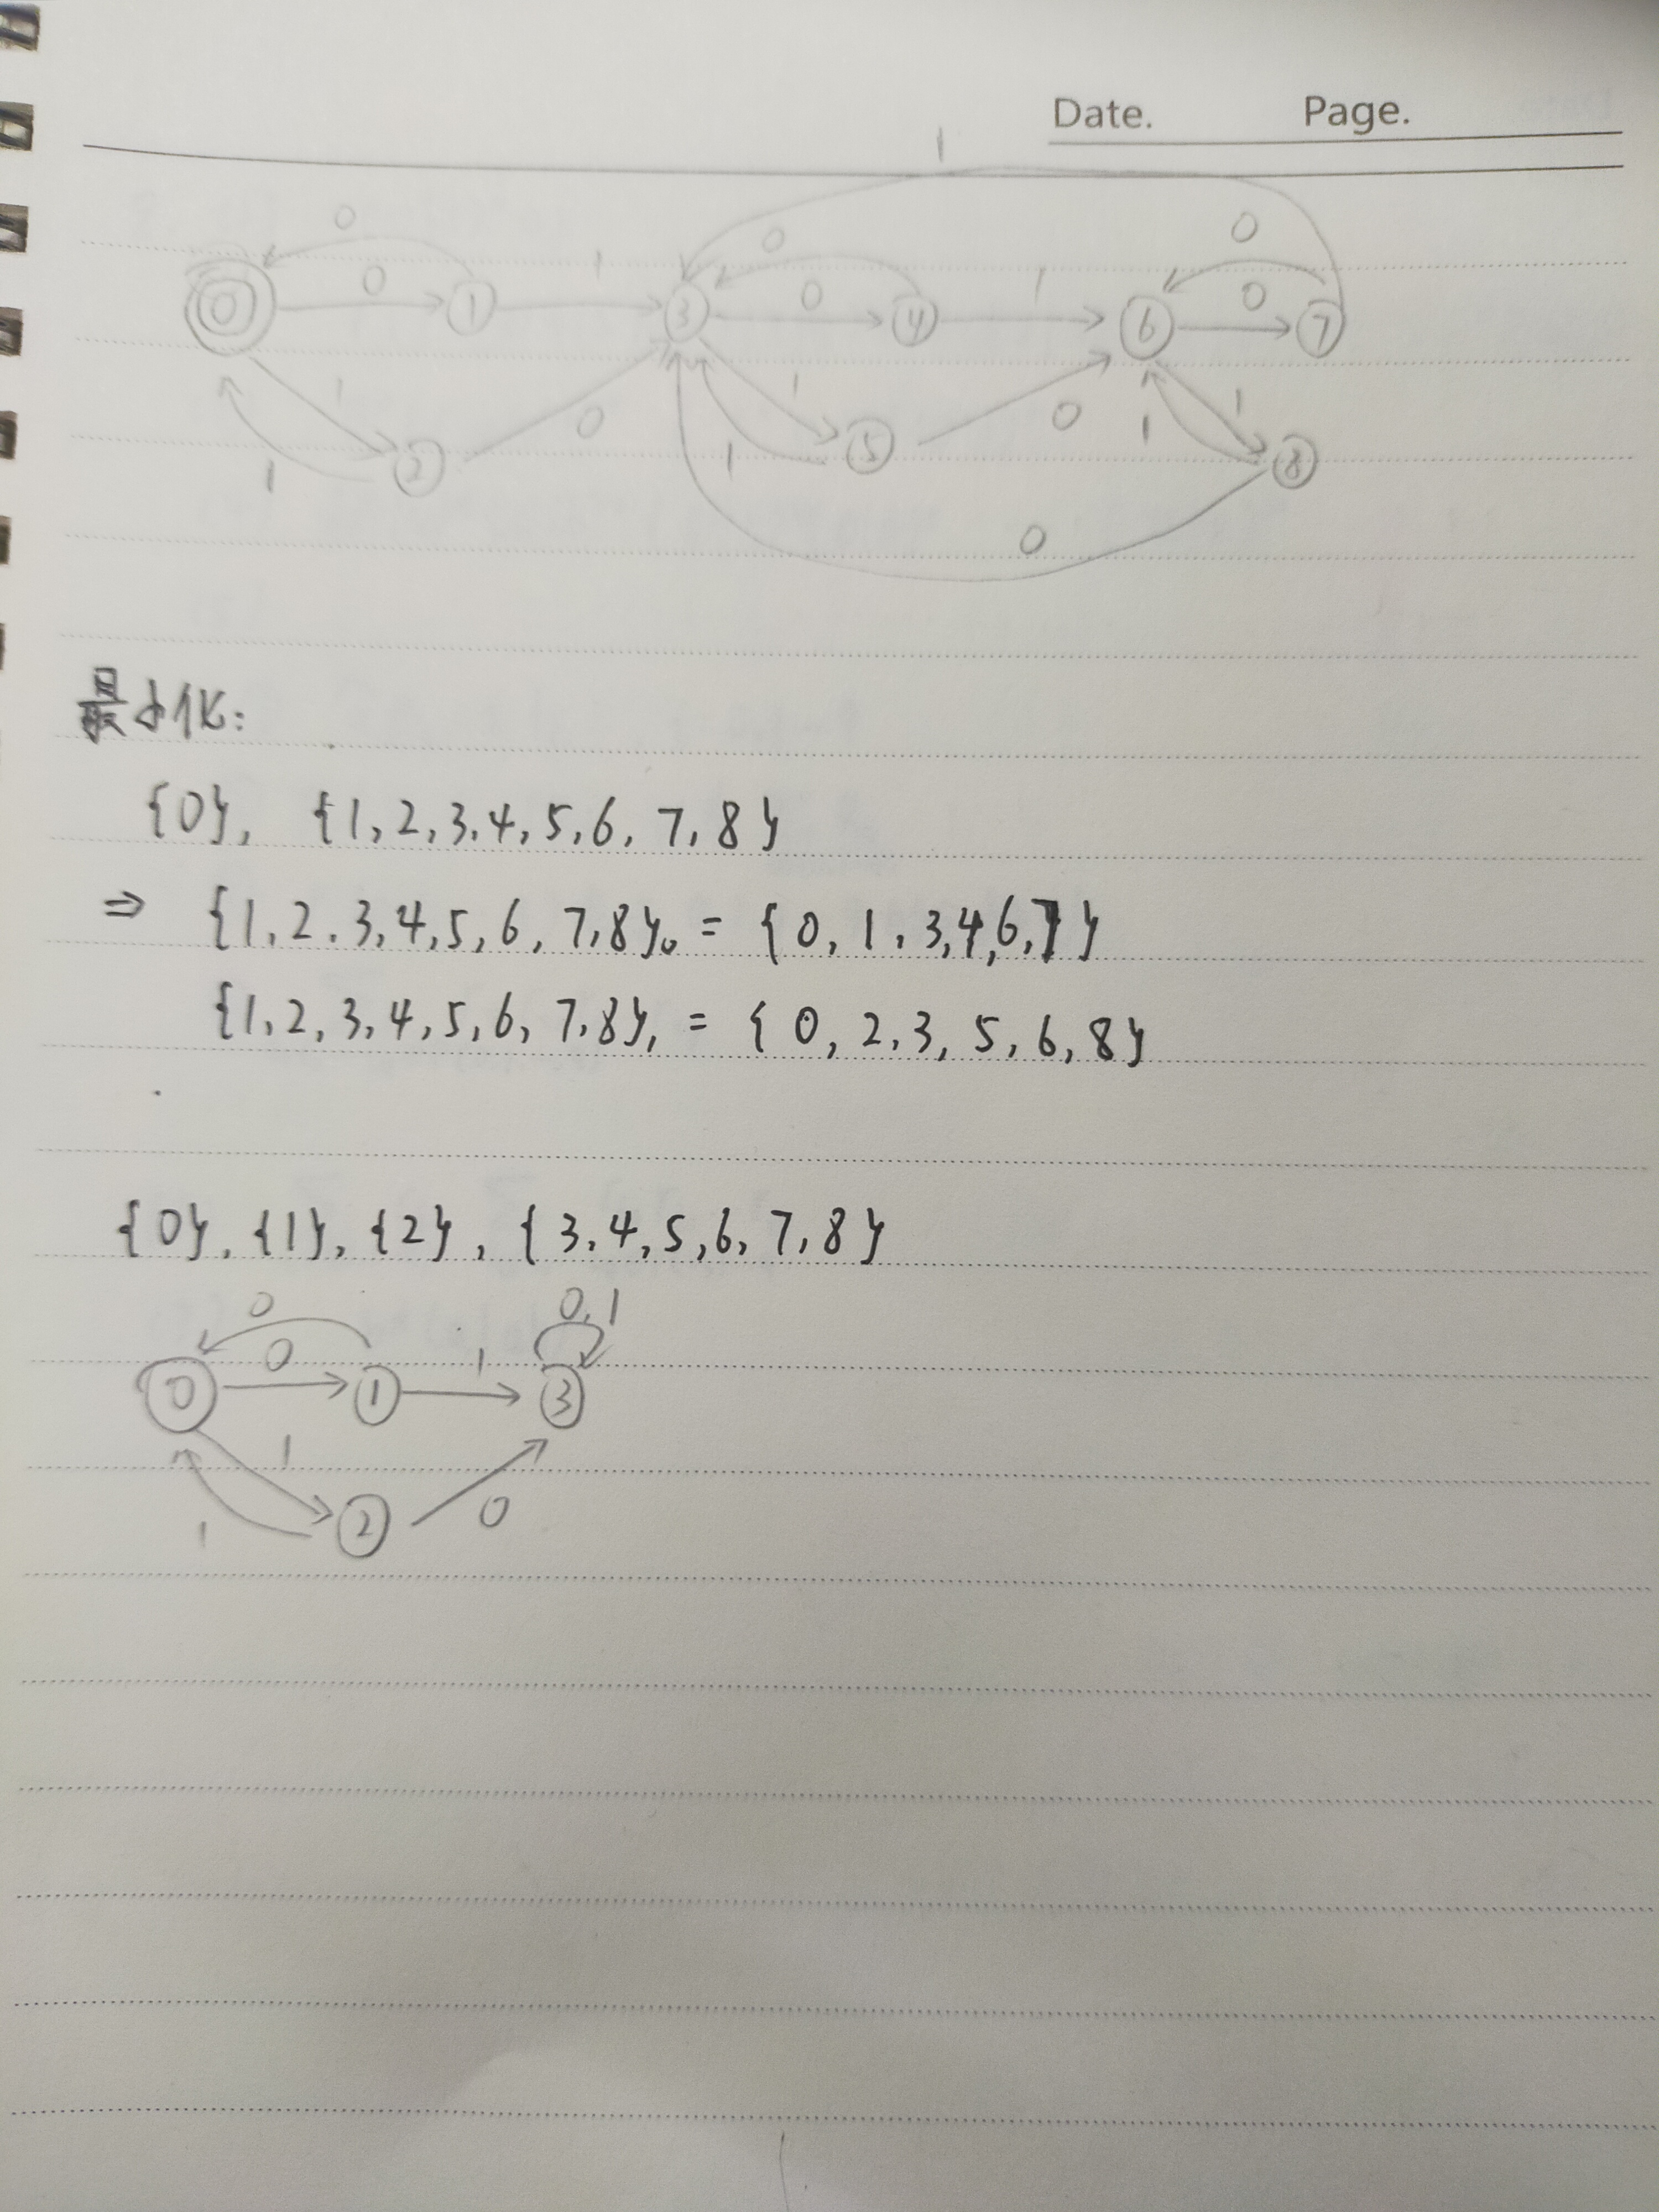 Date. Page.
1
0 0 0
0 1 0 1 0
0 1 3 4 6 7
1 0 1 0 1 1
1 2 1 5 8
0
最小化:
{0}, {1,2,3,4,5,6,7,8}
⇒ {1,2,3,4,5,6,7,8}₀ = {0,1,3,4,6,7}
{1,2,3,4,5,6,7,8}₁ = {0,2,3,5,6,8}
{0}, {1}, {2}, {3,4,5,6,7,8}
0 0,1
0 1
0 1 3
1
1 2 0